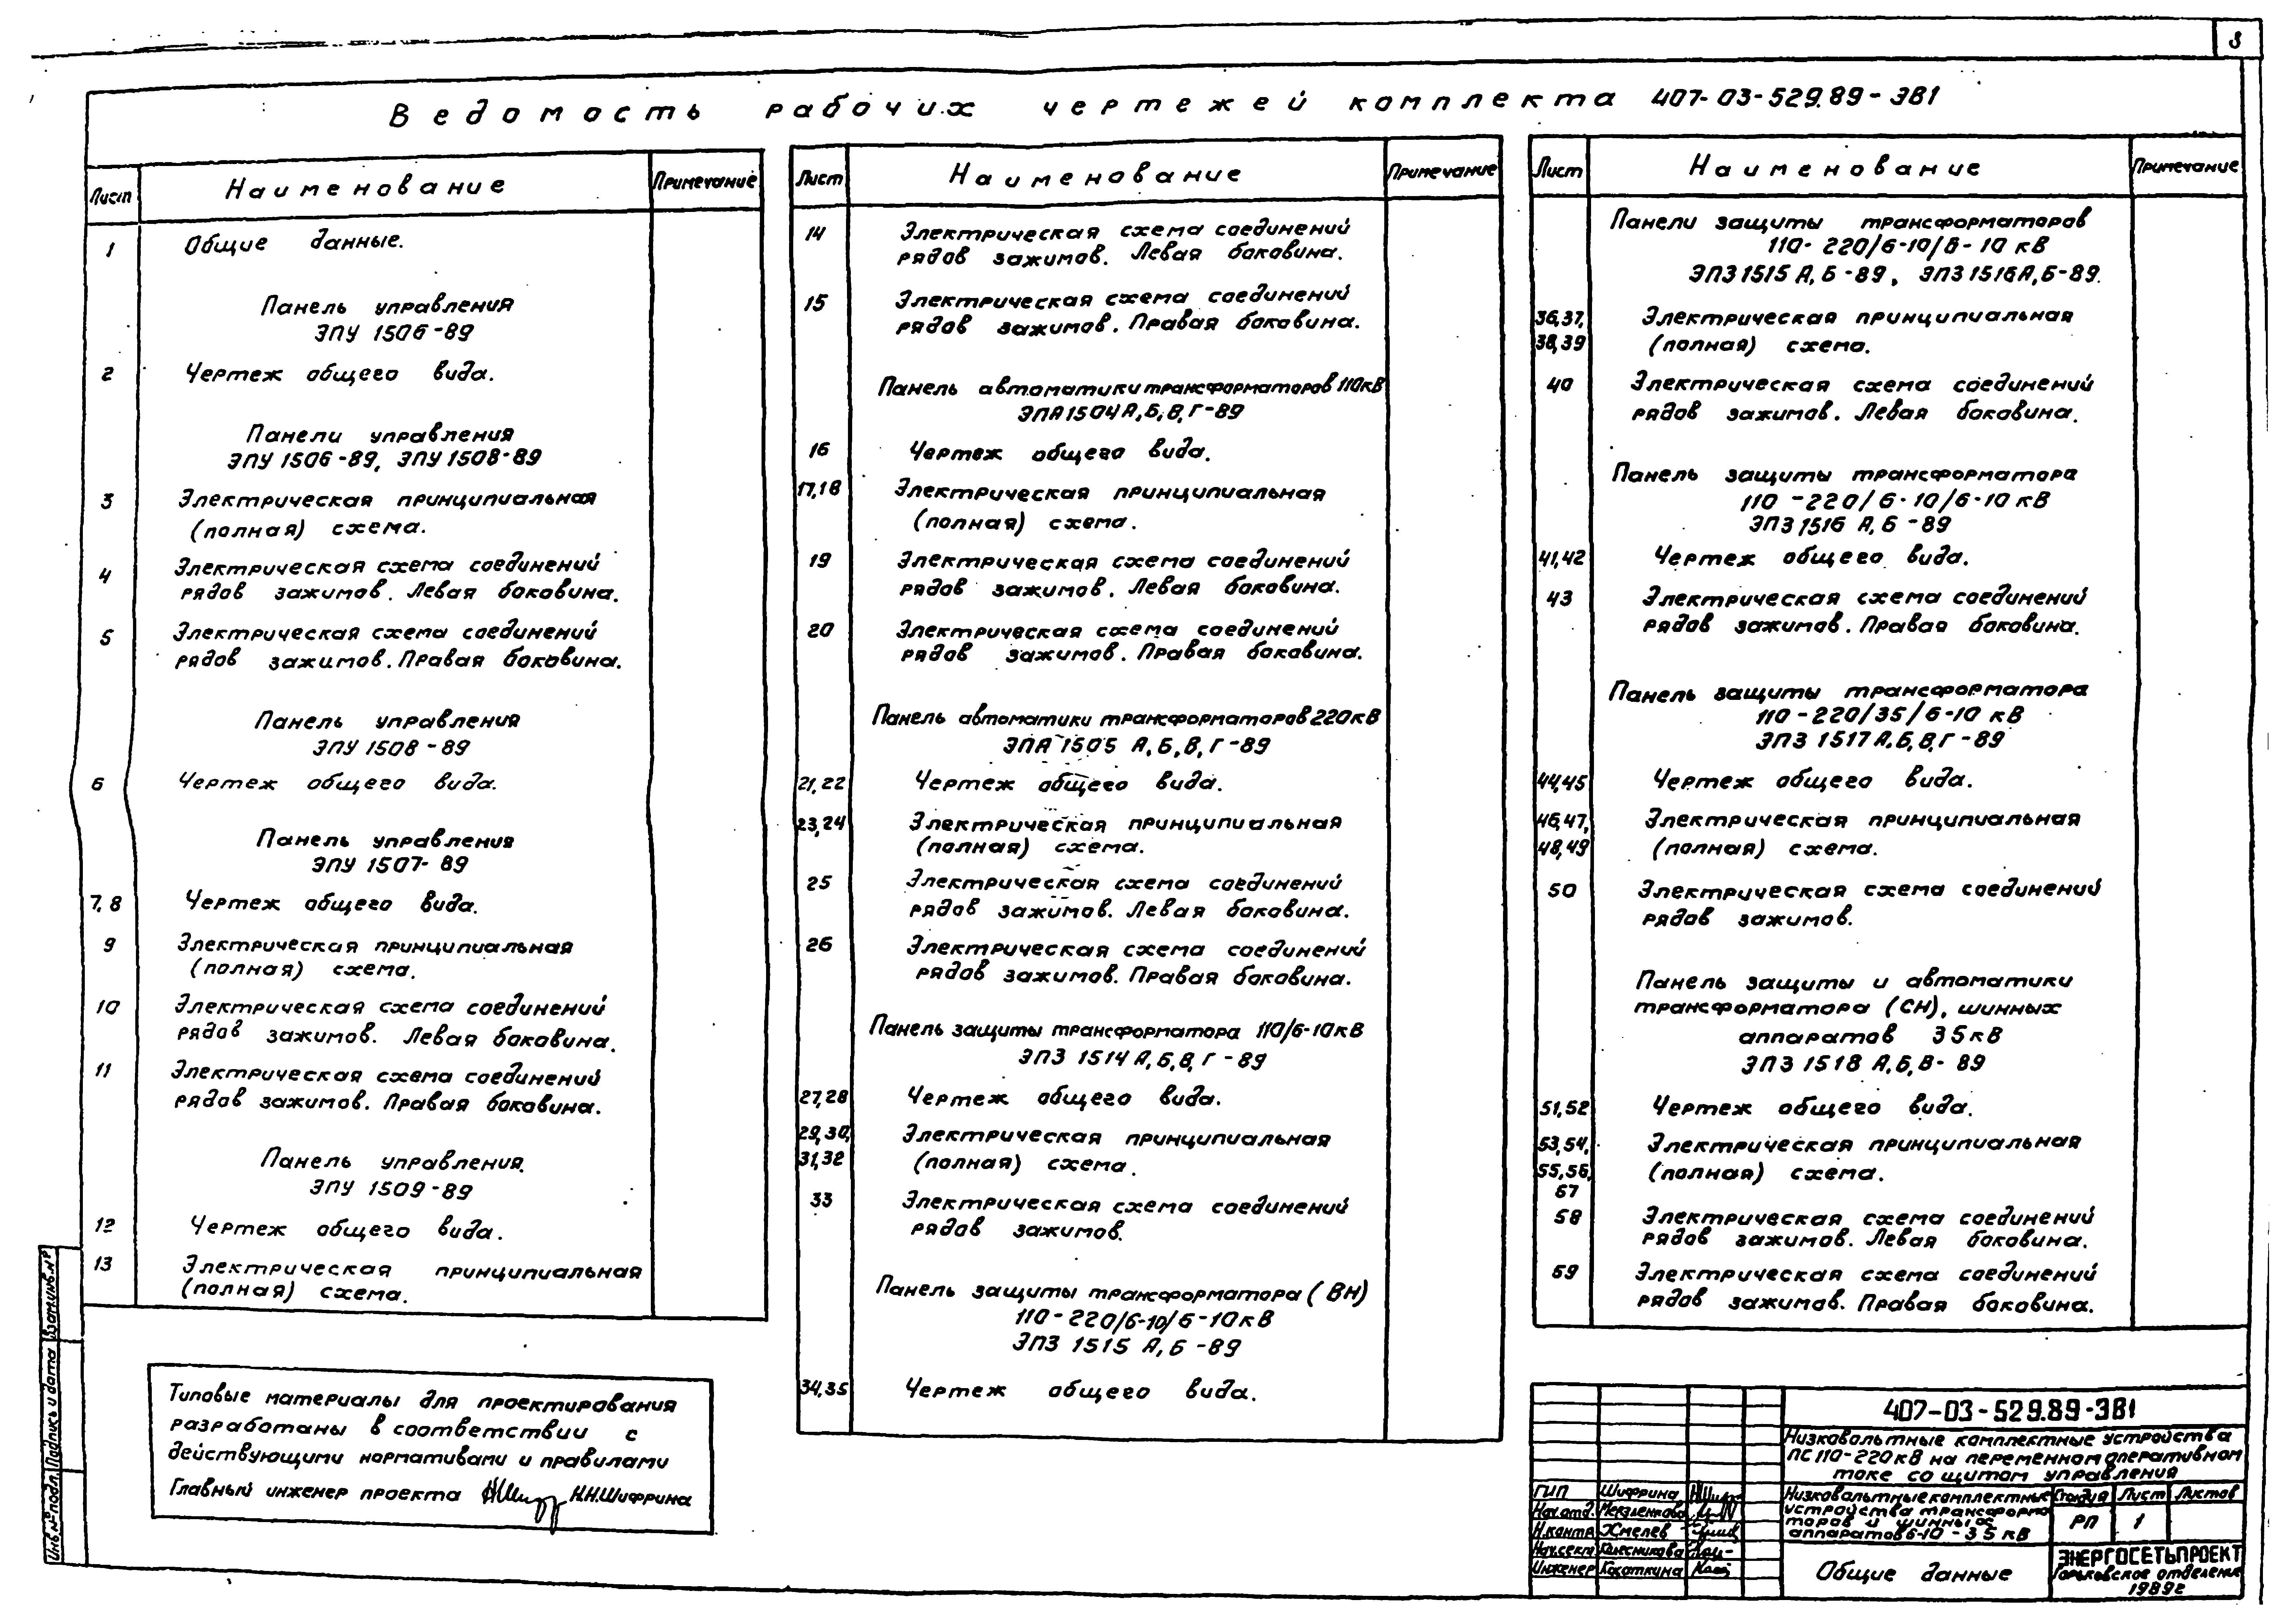 3
Ведомость рабочих чертежей комплекта 407-03-529.89-ЭВ1
Лист Наименование Примечание
1 Общие данные.
Панель управления
ЭПУ 1506-89
2 Чертеж общего вида.
Панели управления
ЭПУ 1506-89, ЭПУ 1508-89
3 Электрическая принципиальная
(полная) схема.
4 Электрическая схема соединений
рядов зажимов. Левая боковина.
5 Электрическая схема соединений
рядов зажимов. Правая боковина.
Панель управления
ЭПУ 1508-89
6 Чертеж общего вида.
Панель управления
ЭПУ 1507-89
7, 8 Чертеж общего вида.
9 Электрическая принципиальная
(полная) схема.
10 Электрическая схема соединений
рядов зажимов. Левая боковина.
11 Электрическая схема соединений
рядов зажимов. Правая боковина.
Панель управления.
ЭПУ 1509-89
12 Чертеж общего вида.
13 Электрическая принципиальная
(полная) схема.
Лист Наименование Примечание
14 Электрическая схема соединений
рядов зажимов. Левая боковина.
15 Электрическая схема соединений
рядов зажимов. Правая боковина.
Панель автоматики трансформаторов 110кВ
ЭПА1504 А, Б, В, Г-89
16 Чертеж общего вида.
17,18 Электрическая принципиальная
(полная) схема.
19 Электрическая схема соединений
рядов зажимов. Левая боковина.
20 Электрическая схема соединений
рядов зажимов. Правая боковина.
Панель автоматики трансформаторов 220кВ
ЭПА 1505 А, Б, В, Г-89
21,22 Чертеж общего вида.
23,24 Электрическая принципиальная
(полная) схема.
25 Электрическая схема соединений
рядов зажимов. Левая боковина.
26 Электрическая схема соединений
рядов зажимов. Правая боковина.
Панель защиты трансформатора 110/6-10кВ
ЭПЗ 1514 А, Б, В, Г-89
27,28 Чертеж общего вида.
29,30, Электрическая принципиальная
31,32 (полная) схема.
33 Электрическая схема соединений
рядов зажимов.
Панель защиты трансформатора (ВН)
110-220/6-10/6-10кВ
ЭПЗ 1515 А, Б -89
34,35 Чертеж общего вида.
Лист Наименование Примечание
Панели защиты трансформаторов
110-220/6-10/6-10 кВ
ЭПЗ 1515 А, Б -89, ЭПЗ 1516А, Б-89.
36,37, Электрическая принципиальная
38,39 (полная) схема.
40 Электрическая схема соединений
рядов зажимов. Левая боковина.
Панель защиты трансформатора
110-220/6-10/6-10 кВ
ЭПЗ 1516 А, Б -89
41,42 Чертеж общего вида.
43 Электрическая схема соединений
рядов зажимов. Правая боковина.
Панель защиты трансформатора
110-220/35/6-10 кВ
ЭПЗ 1517 А, Б, В, Г-89
44,45 Чертеж общего вида.
46,47, Электрическая принципиальная
48,49 (полная) схема.
50 Электрическая схема соединений
рядов зажимов.
Панель защиты и автоматики
трансформатора (СН), шинных
аппаратов 35кВ
ЭПЗ 1518 А, Б, В-89
51,52 Чертеж общего вида.
53,54, Электрическая принципиальная
55,56, (полная) схема.
57
58 Электрическая схема соединений
рядов зажимов. Левая боковина.
59 Электрическая схема соединений
рядов зажимов. Правая боковина.
Типовые материалы для проектирования
разработаны в соответствии с
действующими нормативами и правилами
Главный инженер проекта Н.Н.Шифрина
Инв.№ подл. Подпись и дата Взам.инв.№
407-03-529.89-ЭВ1
Низковольтные комплектные устройства
ПС 110-220кВ на переменном оперативном
токе со щитом управления
ГИП Шифрина
Нач.отд.
Н.контр. Хмелев
Нач.сект Колесникова
Инженер Косаткина
Низковольтные комплектные
устройства трансформа-
торов и шинных
аппаратов 6-10-35 кВ
Стадия Лист Листов
РП 1
Общие данные
ЭНЕРГОСЕТЬПРОЕКТ
Горьковское отделение
1989г